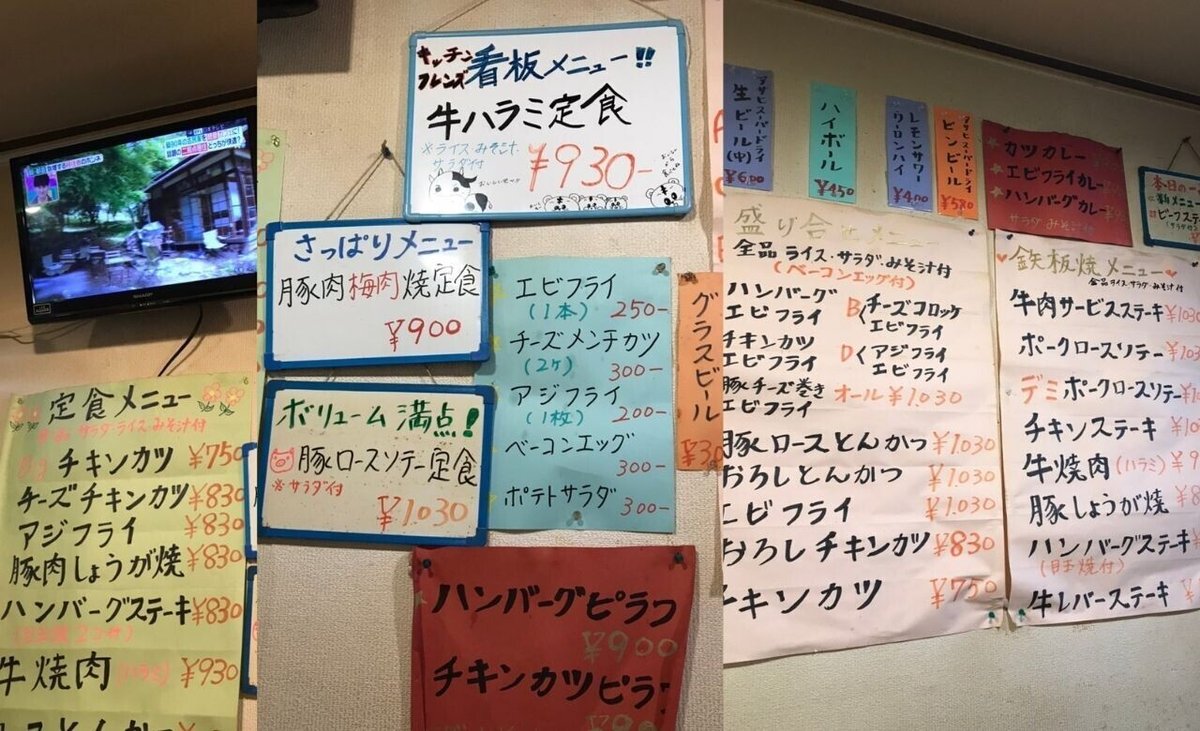 定食メニュー
サラダ・ライス・みそ汁付
チキンカツ ¥750
チーズチキンカツ ¥830
アジフライ ¥830
豚肉しょうが焼 ¥830
ハンバーグステーキ ¥830
牛焼肉(ハラミ) ¥930
SHARP
キッチン
フレンズ
看板メニュー!!
牛ハラミ定食
※ライス・みそ汁
サラダ付
¥930-
さっぱりメニュー
豚肉梅肉焼定食
¥900
ボリューム満点!
豚ロースソテー定食
※サラダ付
¥1.030
エビフライ
(1本) 250-
チーズメンチカツ
(2ケ) 300-
アジフライ
(1枚) 200-
ベーコンエッグ
300-
ポテトサラダ 300-
グラスビール
ハンバーグピラフ
¥900
チキンカツピラ
アサヒスーパードライ
生ビール(中)
¥600
ハイボール
¥450
レモンサワー
ウーロンハイ
¥400
アサヒスーパードライ
ビンビール
¥580
カツカレー
エビフライカレー
ハンバーグカレー
サラダ・みそ汁付
本日の
新メニュー
盛り合せメニュー
全品ライス・サラダ・みそ汁付
(ベーコンエッグ付)
ハンバーグ
エビフライ
チキンカツ
エビフライ
豚チーズ巻き
エビフライ
B チーズコロッケ
エビフライ
D アジフライ
エビフライ
オール¥1.030
豚ロースとんかつ ¥1.030
おろしとんかつ ¥1.030
エビフライ ¥1.030
おろしチキンカツ ¥830
チキンカツ ¥750
鉄板焼メニュー
全品ライス・サラダ・みそ汁付
牛肉サービスステーキ
ポークロースソテー
デミポークロースソテー
チキンステーキ
牛焼肉(ハラミ)
豚しょうが焼
ハンバーグステーキ
(目玉焼付)
牛レバーステーキ